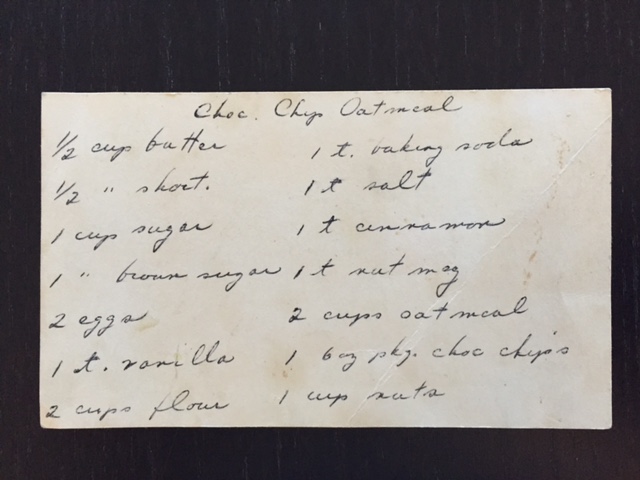 Choc. Chip Oatmeal
1/2 cup butter
1/2 " short.
1 cup sugar
1 " brown sugar
2 eggs
1 t. vanilla
2 cups flour
1 t. baking soda
1 t salt
1 t cinnamon
1 t nut meg
2 cups oatmeal
1 6oz pkg. choc chips
1 cup nuts